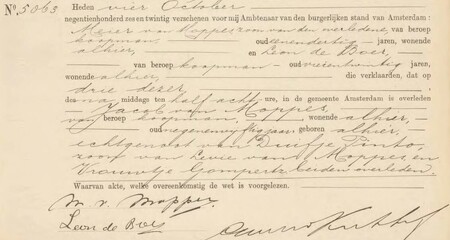 No. 5063 Heden vier October
negentienhonderd zes en twintig verschenen voor mij Ambtenaar van den burgerlijken stand van Amsterdam :
Meier van Moppes zoon van den overledene, van beroep
koopman oud eenendertig jaren, wonende
alhier, en Leon de Boer,
van beroep koopman oud jaren,
wonende alhier, die verklaarden, dat op
drie dezer,
des na middags ten half acht ure, in de gemeente Amsterdam is overleden
Jacob van Moppes,
van beroep koopman, wonende alhier,
oud jaar geboren alhier,
echtgenoot van Duifje Pinto,
zoon van Levie van Moppes en
Vrouwtje Gompertz beiden overleden.
Waarvan akte, welke overeenkomstig de wet is voorgelezen.
M. v. Moppes.
Leon de Boer